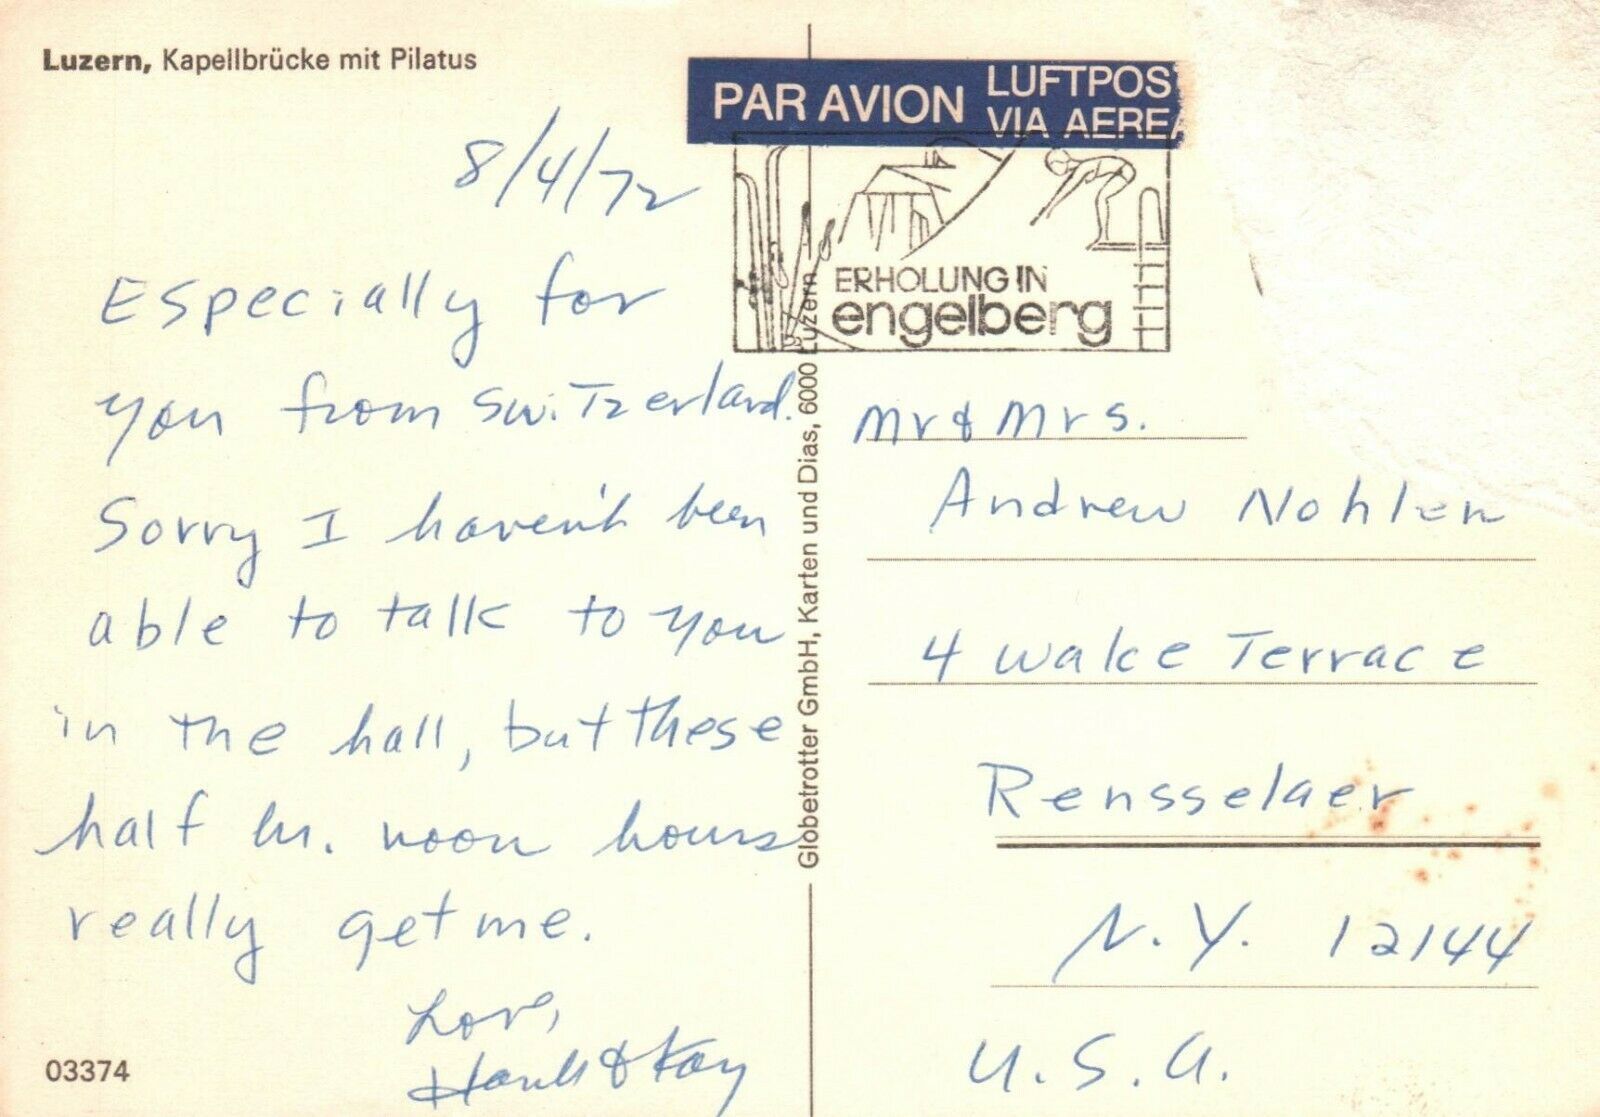 Luzern, Kapellbrücke mit Pilatus
8/4/72
Especially for
you from Switzerland.
Sorry I haven't been
able to talk to you
in the hall, but these
half hr. noon hours
really get me.
Love,
Hank & Kay
03374
Globetrotter GmbH, Karten und Dias, 6000 Luzern
PAR AVION
LUFTPOS
VIA AEREA
ERHOLUNG IN
engelberg
Mr & Mrs.
Andrew Nohlen
4 Wake Terrace
Rensselaer
N.Y. 12144
U.S.A.